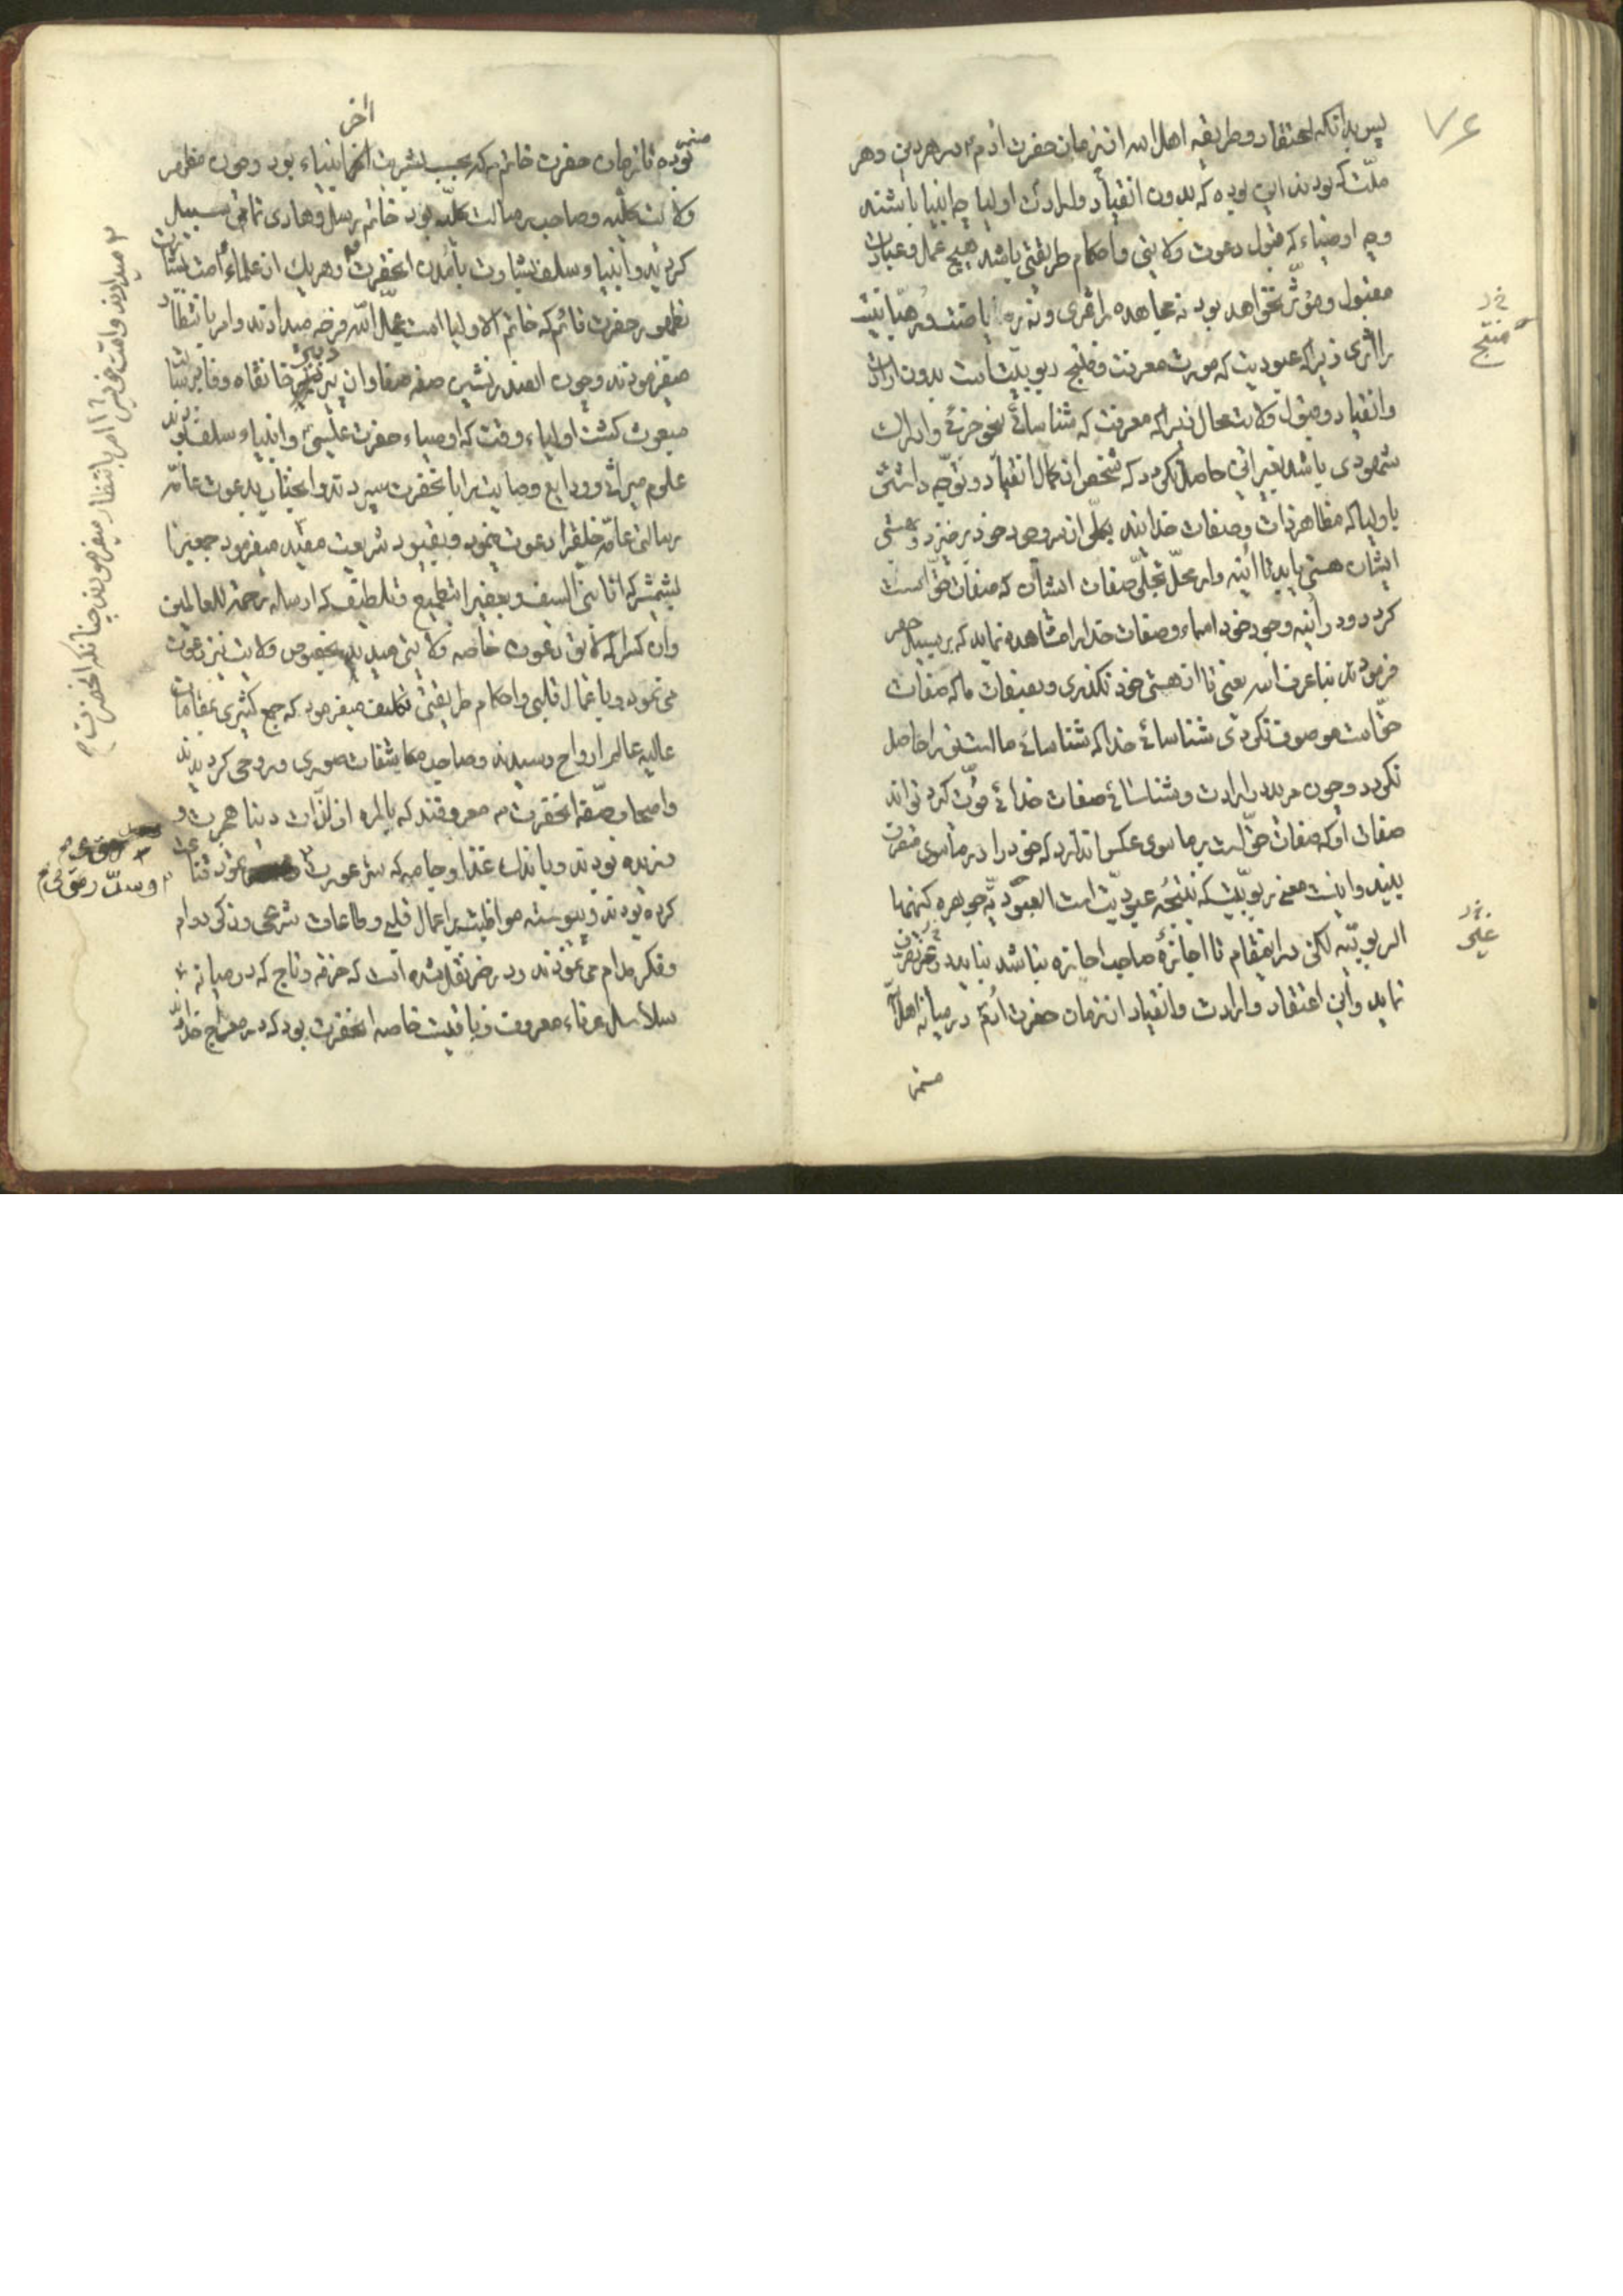 ۷۶
پس بدانکه اعتقاد و طریقه اهل الله از زمان حضرت آدم ع در هر دین و هر
ملّت که بودند این بوده که بدون انقیاد و ارادت اولیا چه انبیا باشند
و چه اوصیاء که قبول دعوت ولایتی و احکام طریقتی باشد هیچ عمل و عبادت
مقبول و مؤثّر نخواهد بود نه مجاهده را ثمری و نه ریاضت و رهبانیت
را اثری زیرا که عبودیت که مورث معرفت و منتج ربوبیّت است بدون ارادت
و انقیاد و قبول ولایت محال زیرا که معرفت که شناسائی بنحو جزئی و ادراک
شهودی باشد بغیر این حاصل نگردد که شخص از کمال انقیاد و توجّه داشتن
باولیا که مظاهر ذات و صفات خدایند بکلّی از سر وجود خود برخیزد و بهستی
ایشان هستی یابد تا آئینه وار محلّ تجلّی صفات ایشان که صفات حقّ است
گردد و در آئینه وجود خود اسماء و صفات خدا را مشاهده نماید که بر سبیل حصر
فرمودند بنا عرف الله یعنی تا از هستی خود نگذری و بصفات ما که صفات
حقّ است موصوف نگردی شناسائی خدا که شناسائی ماست ترا حاصل
نگردد و چون مرید در ارادت و بشناسائی صفات خدائی مؤیّد گردد تواند
صفات او که صفات حقّ است بر ماسوی عکس اندازد که خود را در ماسوی متصرّف
بیند و اینست معنی ربوبیّت که نتیجه عبودیّت است العبودیّة جوهرة کنهها
الربوبیّة لکن در این مقام تا اجازه صاحب اجازه نباشد نباید تصرّف
نماید و این اعتقاد و ارادت و انقیاد از زمان حضرت آدم در میانه اهل الله
مستمر
منتج
مستمر
بوده تا زمان حضرت خاتم که بحسب بشریت آخر انبیاء بود و چون مظهر
آخر
ولایت کلّیه و صاحب رسالت کلّیه بود خاتم رسل و هادی تمامی سبیل
گردید و انبیاء سلف بشارت بآمدن آنحضرت و هر یک از علماء امت بشارت
بظهور حضرت قائم که خاتم الاولیا است عجّل الله فرجه میدادند و امر بانتظار
میفرمودند و چون آنصدر نشین صفه صفا و آن پیر خانقاه وفا برسالت
مبعوث گشت اولیاء وقت که اوصیاء حضرت عیسی ع و انبیاء سلف بودند
علوم میراثی و ودایع وصایت را بآنحضرت سپردند و آنجناب بدعوت عامّه
رسالتی عامّه خلق را دعوت نموده و بقیود شریعت مقیّد میفرمود جمعی را
بشمشیر که انا نبیّ السیف و بعضی را بتطمیع و تلطیف که ارسله رحمة للعالمین
و آن کسرا که لایق دعوت خاصه ولایتی میدید بخصوص ولایت نیز دعوت
می نمود و باعمال قلبی و احکام طریقتی تکلیف میفرمود که جمع کثیری بمقامات
عالیه عالم ارواح رسیدند و صاحب مکاشفات صوری و روحی گردیدند
و اصحاب صفّه آنحضرت معروفند که بالمره از لذّات دنیا هجرت و
بریده بودند و باندک غذا و جامه که ستر عورت نمود قناعت
کرده بودند و پیوسته مواظبت بر اعمال قلبی و طاعات شرعی و ذکر دوام
و فکر مدام می نمودند و در خبر نقل شده است که خرقه و تاج که در میانه
سلاسل عرفاء معروفست و باقیست خاصه آنحضرت بود که در معراج خداوند
میدادند و امت خویش را امر بانتظار میفرمودند چنانکه آنحضرت
و سدّ رمق